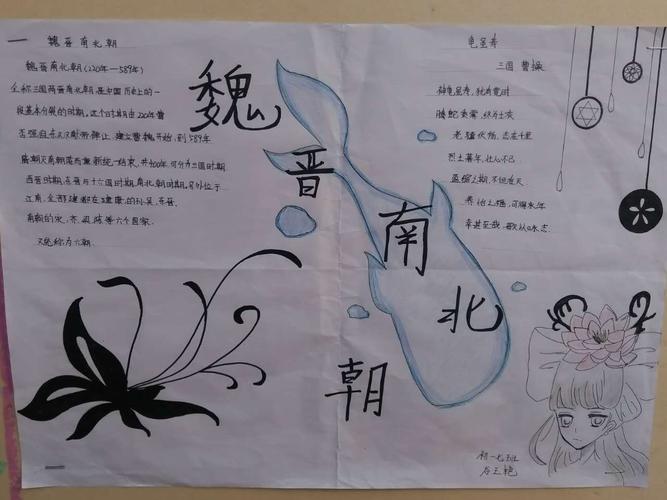 魏晋南北朝
魏晋南北朝(220年—589年)
全称三国两晋南北朝,是中国历史上的一
段基本分裂的时期。这个时期由220年曹
丕强自东汉献帝禅让,建立曹魏开始,到589年
隋朝灭南朝陈而重新统一结束,共400年,可分为三国时期
西晋时期,东晋与十六国时期,南北朝时期,另外位于
江南,全部建都在建康的孙吴、东晋、
南朝的宋、齐、梁、陈等六个国家
又统称为六朝。
魏
晋
南
北
朝
龟虽寿
三国 曹操
神龟虽寿,犹有竟时
腾蛇乘雾,终为土灰
老骥伏枥,志在千里
烈士暮年,壮心不已
盈缩之期,不但在天
养怡之福,可得永年
幸甚至哉,歌以咏志
初一七班